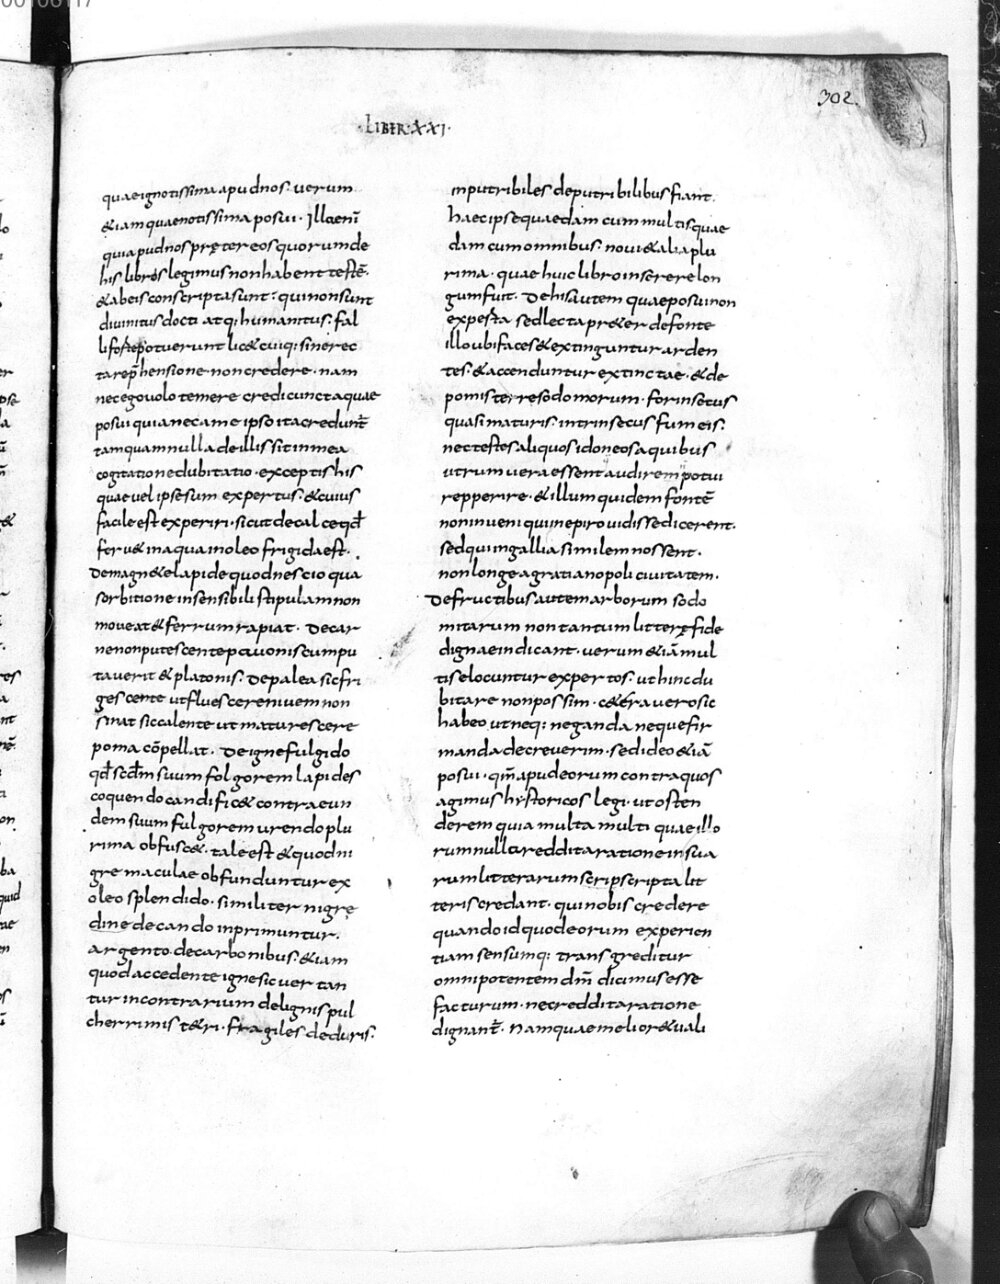 302
·LIBER·XXI·
quae ignotissima apud nos. verum
& iam quae notissima posui. Illa enī
quia pud nos pręter eos quorum de
his libros legimus non habent testē.
& ab eis conscripta sunt: qui non sunt
divinitus docti atq; humanitus. fal
li fo potuerunt lic& cuiq; sine rec
ta rep̄hensione non credere. nam
nec ego volo temere credi cuncta quae
posui quia nec a me ipso ita credunt̄
tamquam nulla de illis sit in mea
cogitatione dubitatio. exceptis his
quae vel ipse sum expertus. & cuius
facile est experiri. sicut de calce qd̄
ferv& in aqua in oleo frigida est.
De magn&e lapide quod nescio qua
sorbitione insensibili stipulam non
moveat & ferrum rapiat. De car
ne non putescente pavonis cum pu
taverit & platonis. De palea sic fri
gescente ut fluescere nivem non
sinat sic calente ut maturescere
poma cōpellat. De igne fulgido
qd̄ scd̄m suum folgorem lapides
coquendo candific& contra eun
dem suum fulgorem urendo plu
rima obfusc&. tale est & quod ni
gre maculae obfunduntur ex
oleo splendido. similiter nigrę
dine de cando inprimuntur.
argento. de carbonibus. & iam
quod accedente igne sic vertan
tur in contrarium de lignis pul
cherrimis t&ri. fragiles de duris.
inputribiles de putribilibus fiant.
haec ipse quaedam cum multis quae
dam cum omnibus. novi & alia plu
rima. quae huic libro inserere lon
gum fuit. De his autem quae posui non
experta sed lecta pr&er de fonte
illo ubi faces & extinguntur arden
tes. & accenduntur extinctae. & de
pomis terre sodomorum. forinsecus
quasi maturis. intrinsecus fumeis.
nec testes aliquos idoneos a quibus
utrum vera essent audirem potui
repperire. & illum quidem fontē
non inveni qui in epiro vidisse dicerent.
sed qui in gallia similem nossent.
non longe a gratianopoli civitatem.
De fructibus autem arborum sodo
mitarum non tantum litterę fide
dignae indicant. verum & iā mul
ti se locuntur expertos. ut hinc du
bitare non possim. c&era vero sic
habeo ut neq; neganda neque fir
manda decreverim. sed ideo & iā
posui. qm̄ apud eorum contra quos
agimus hystoricos legi. ut osten
derem quia multa multi quae illo
rum nulla reddita ratione in sua
rum litterarum scrip scripta lit
teris credant. qui nobis credere
quando id quod eorum experien
tiam sensumq; transgreditur
omnipotentem dm̄ dicimus esse
facturum. nec reddita ratione
dignant̄. Nam quae melior & vali